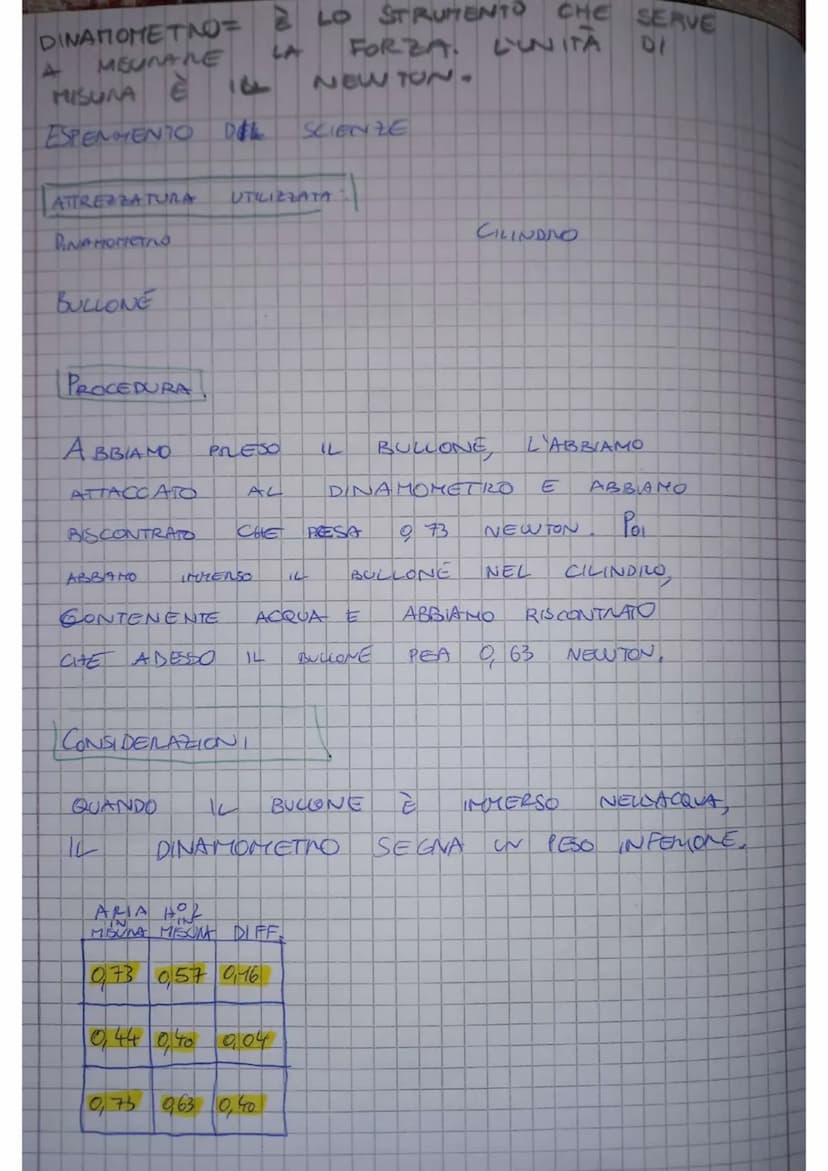 DINAMOMETRO= È LO STRUMENTO CHE SERVE
A MEURARE LA FORZA. L'UNITÀ DI
MISURA È IL NEWTON.
ESPERIMENTO DEL SCIENZE
ATTREZZATURA UTILIZZATA:
DINAMOMETRO CILINDRO
BULLONE
PROCEDURA
ABBIAMO PRESO IL BULLONE, L'ABBIAMO
ATTACCATO AL DINAMOMETRO E ABBIAMO
RISCONTRATO CHE PESA 0,73 NEWTON. POI
ABBIAMO IMMERSO IL BULLONE NEL CILINDRO,
CONTENENTE ACQUA E ABBIAMO RISCONTRATO
CHE ADESO IL BULLONE PEA 0,63 NEWTON.
CONSIDERAZIONI
QUANDO IL BULLONE È IMMERSO NELL'ACQUA,
IL DINAMOMETRO SEGNA UN PESO INFERIORE.
ARIA H2O
IN IN
MISURA MISURA DIFF.
0,73 0,57 0,16
0,44 0,40 0,04
0,73 0,63 0,40